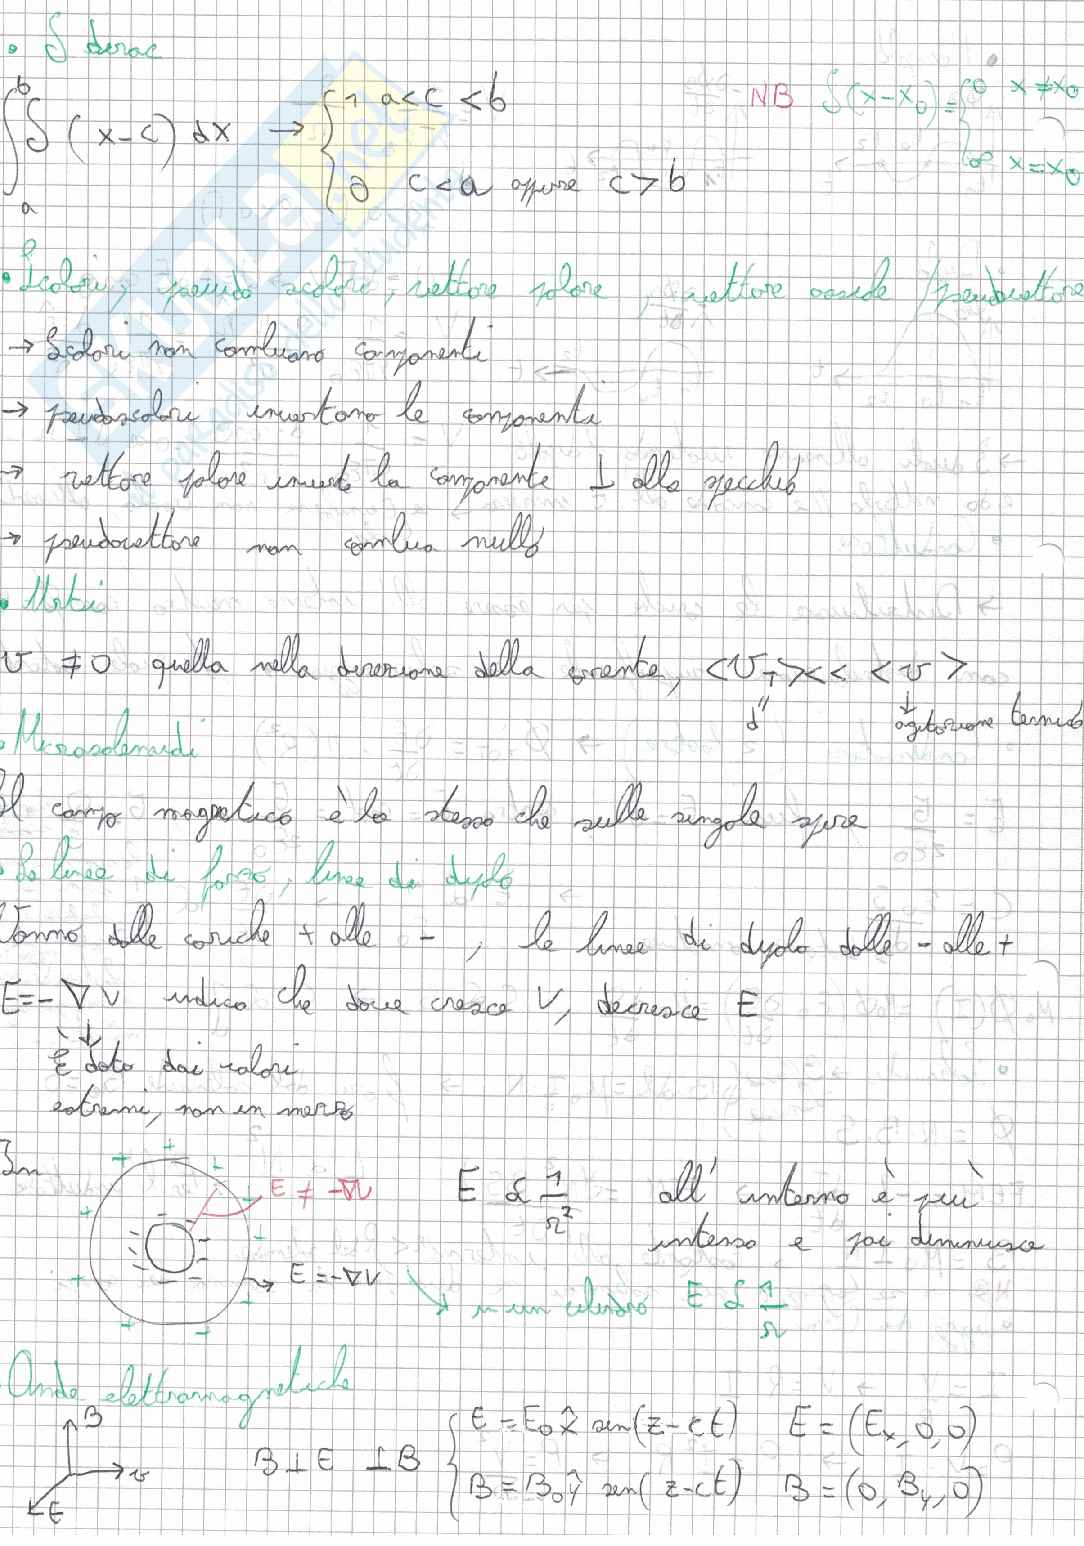 • δ dirac
∫_a^b δ(x-c) dx → { 1 a<c<b
0 c<a oppure c>b
NB δ(x-x₀) = { 0 x≠x₀
∞ x=x₀
• Scalari, pseudo scalari, vettore polare, vettore assiale / pseudovettore
→ Scalari non cambiano componenti
→ pseudoscalari invertono le componenti
→ vettore polare inverte la componente ⊥ allo specchio
→ pseudovettore non cambia nulla
v ≠ 0 quella nella direzione della corrente, <v_T> << <v>
d"
↓ agitazione termica
• Microsolenoidi
Il campo magnetico è lo stesso che sulle singole spire
• Le linee di forza, linee di dipolo
Vanno dalle cariche + alle -, le linee di dipolo dalle - alle +
E=-∇V indica che dove cresce V, decresce E
↓
È dato dai valori
estremi, non in mezzo
In
E ≠ -∇V
E = -∇V
E α 1/r² = all'interno è più
intenso e poi diminuisce
↘ in un cilindro E α 1/r
Onde elettromagnetiche
B
v
E
B⊥E ⊥B { E = E₀ x̂ sen(z-ct) E = (Eₓ, 0, 0)
B = B₀ ŷ sen(z-ct) B = (0, B_y, 0)